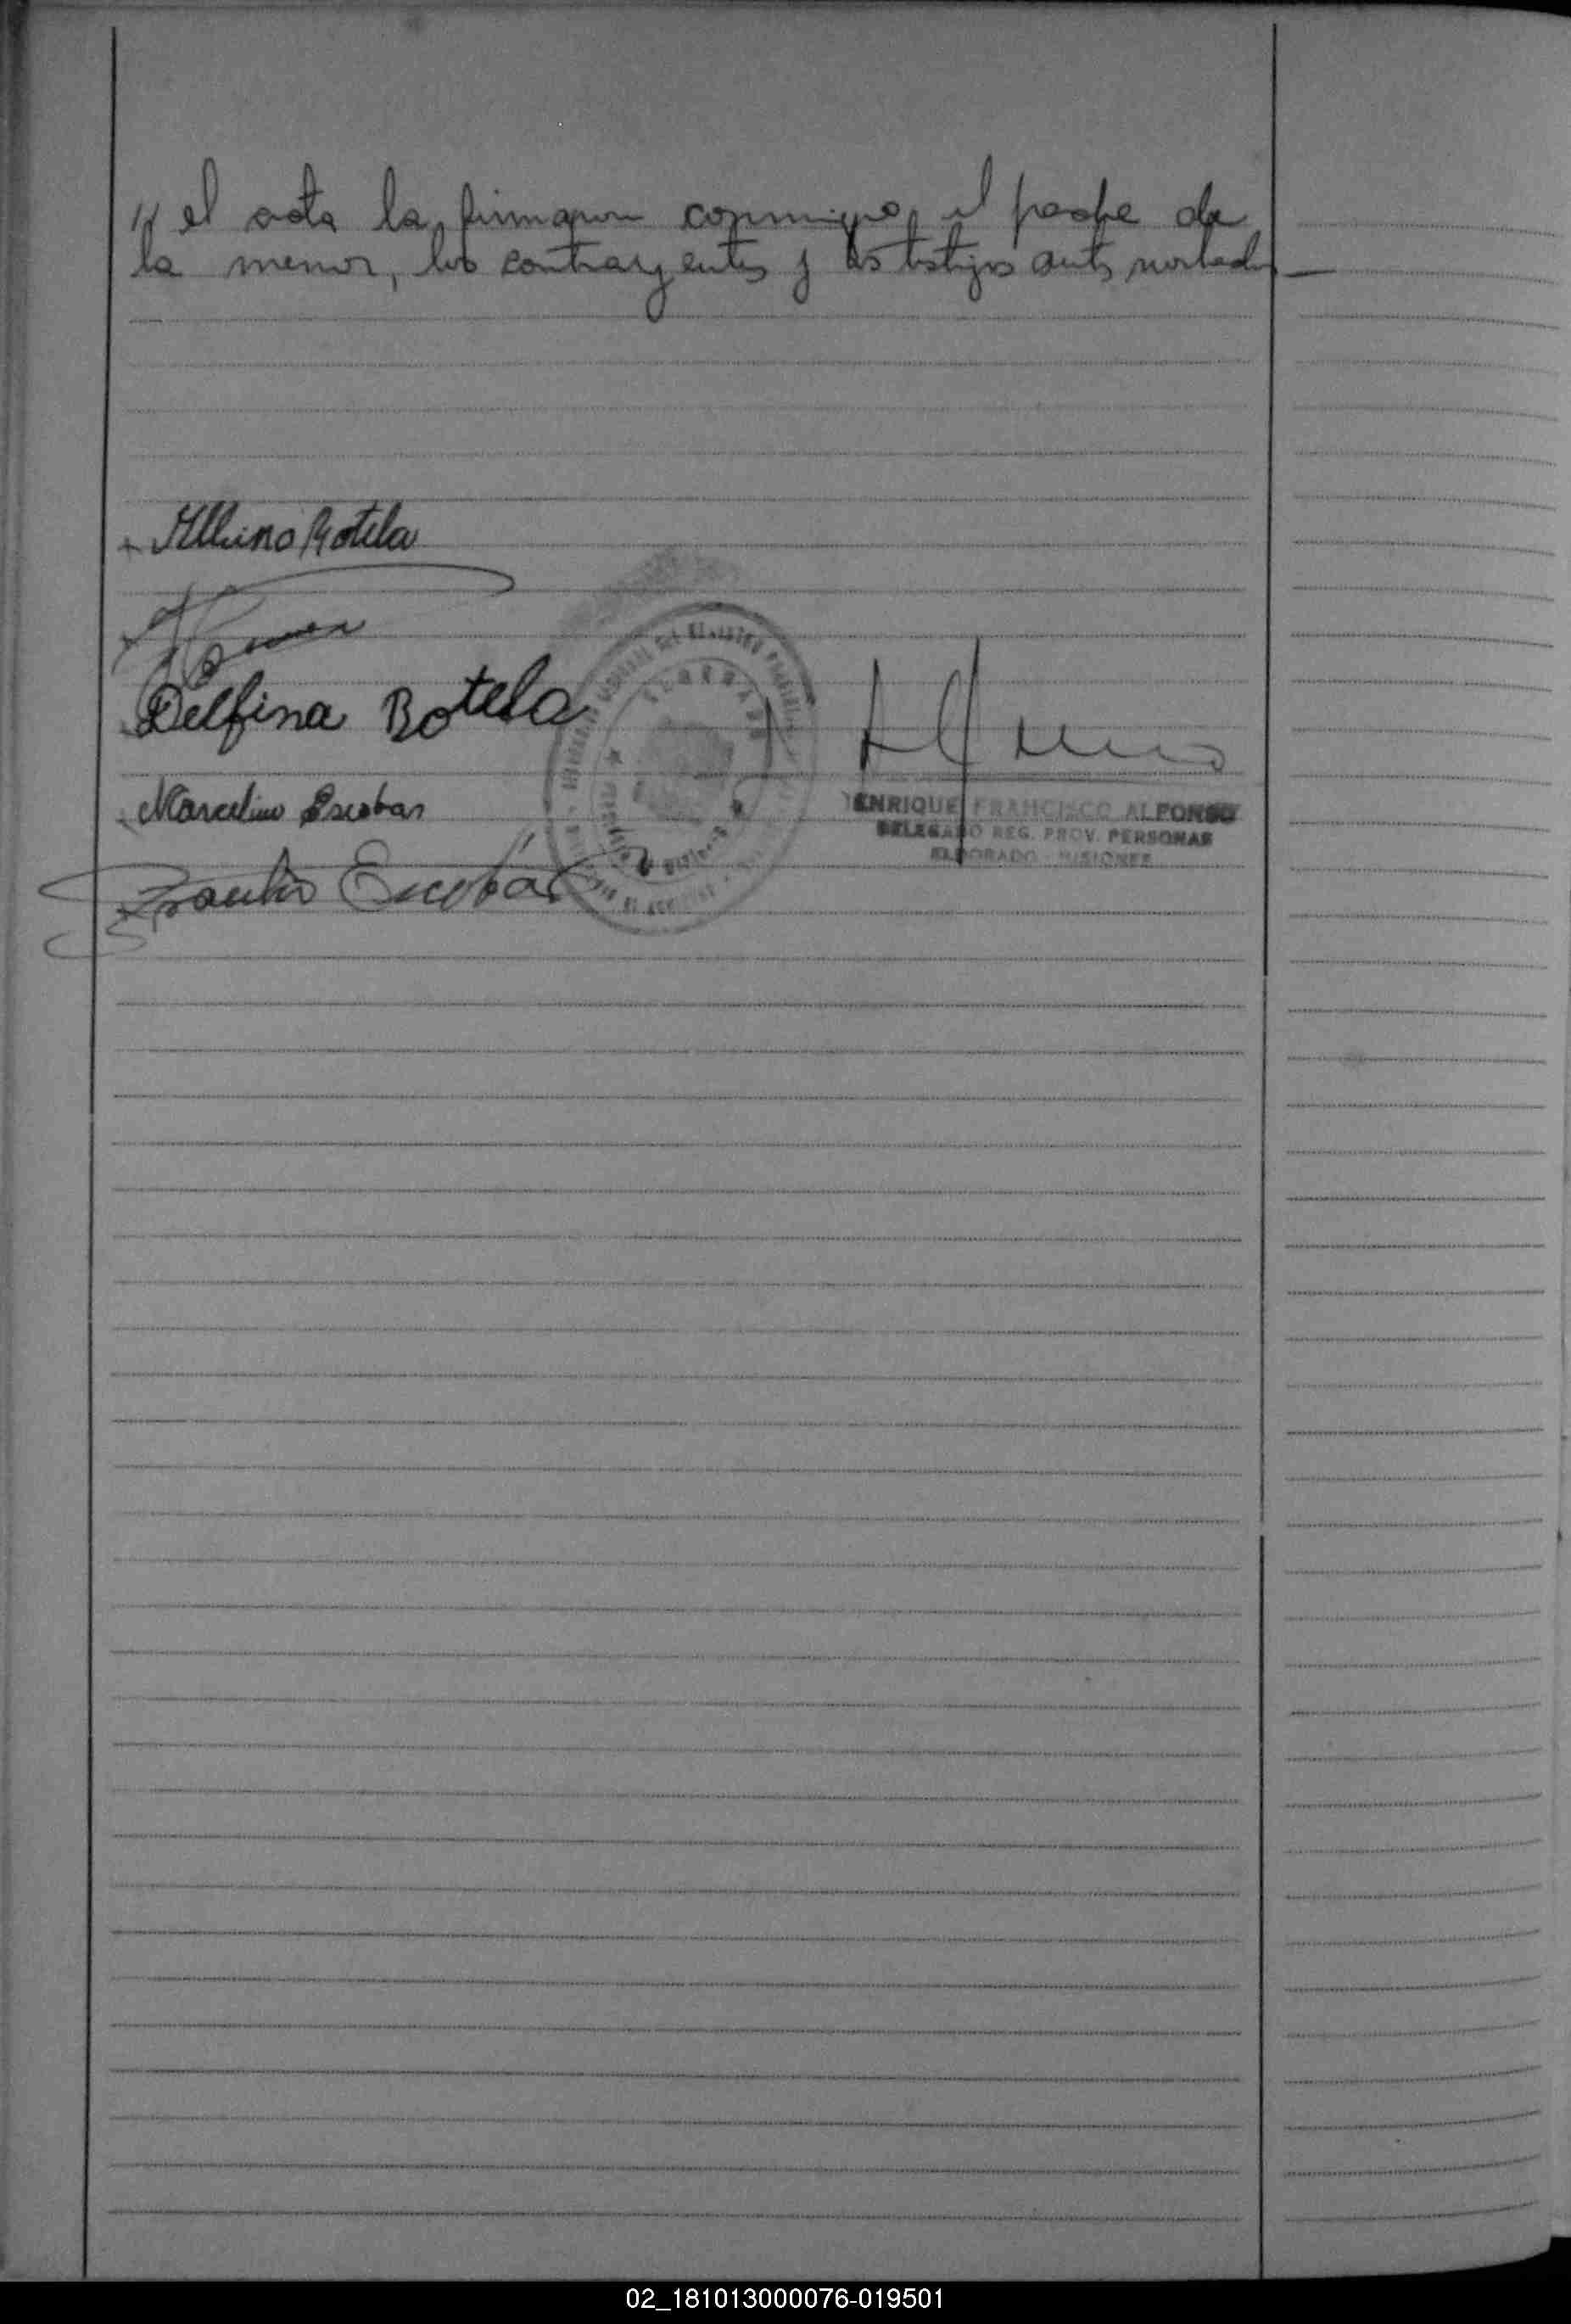 // el acta la firmaron conmigo, el padre de
la menor, los contrayentes y los testigos antes nombrados —
Albino Botela
Delfina Botela
Marcelino Escobar
ENRIQUE FRANCISCO ALFONSO
DELEGADO REG. PROV. PERSONAS
ELDORADO - MISIONES
Braulio Escobar
02_181013000076-019501